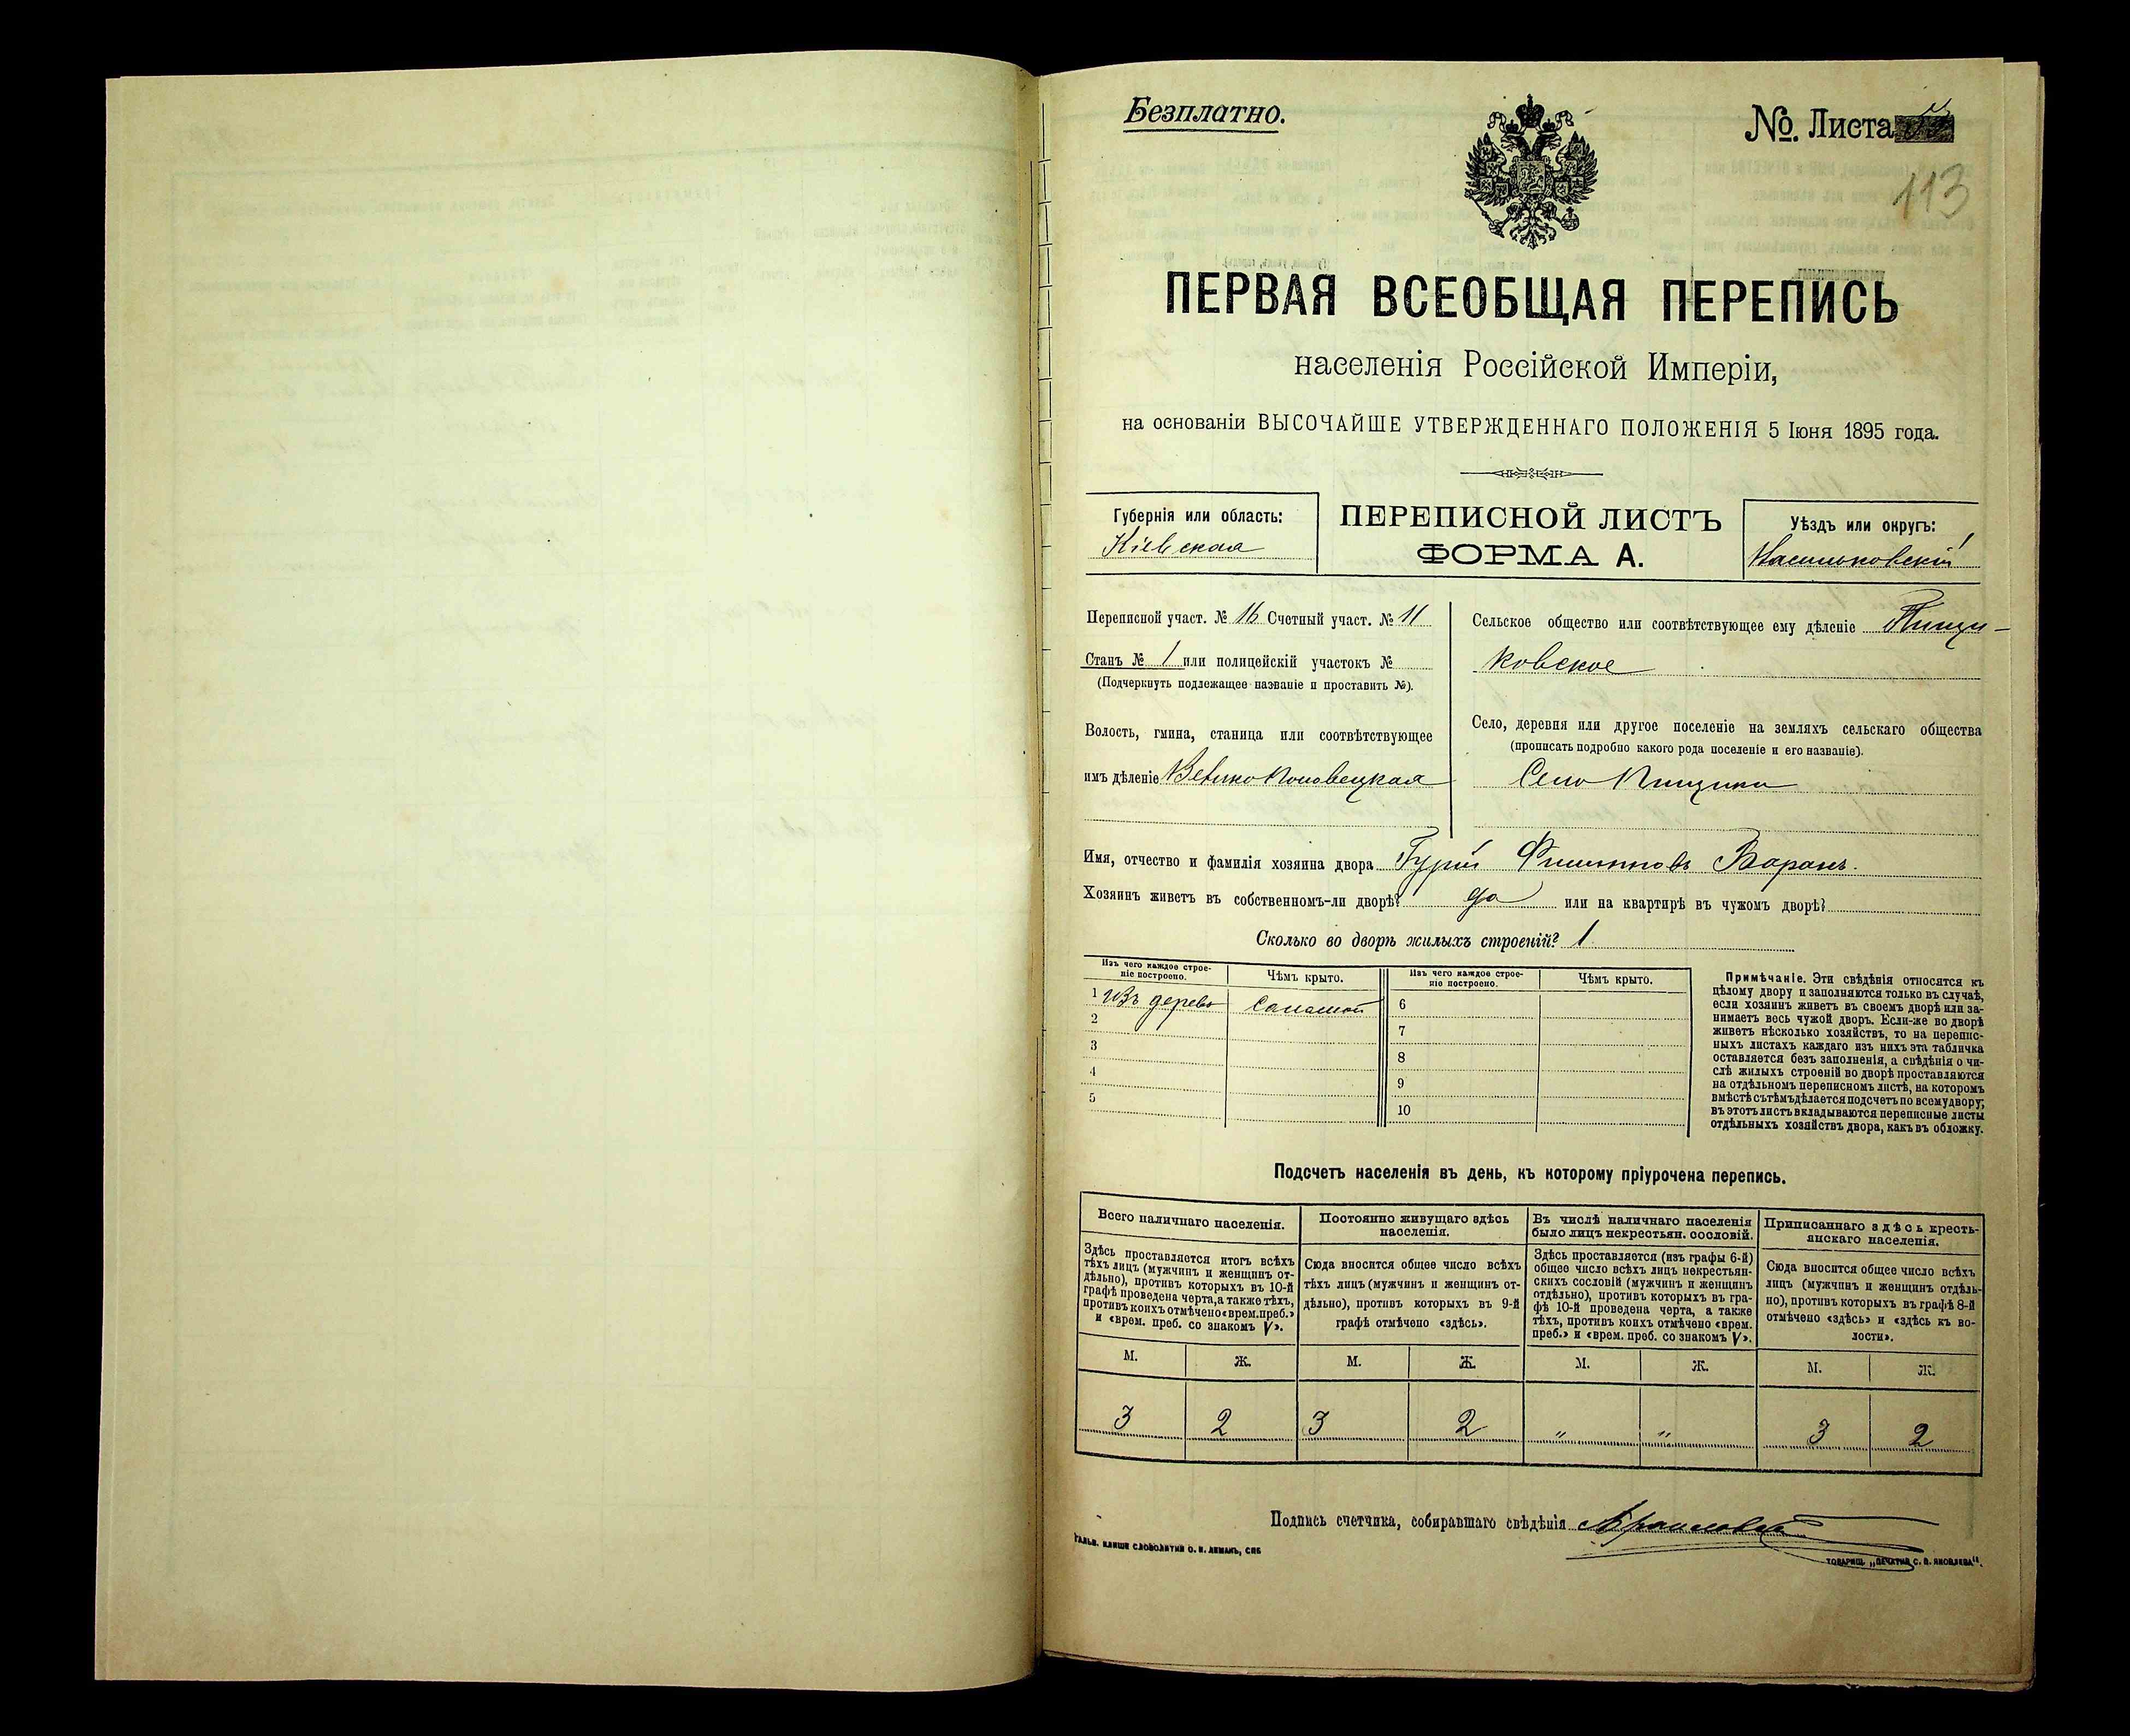 Безплатно.
№. Листа
113
ПЕРВАЯ ВСЕОБЩАЯ ПЕРЕПИСЬ
населенія Россійской Имперіи,
на основаніи ВЫСОЧАЙШЕ УТВЕРЖДЕННАГО ПОЛОЖЕНІЯ 5 Іюня 1895 года.
Губернія или область:
Кіевская
ПЕРЕПИСНОЙ ЛИСТЪ
ФОРМА А.
Уѣздъ или округъ:
Васильковскій
Переписной участ. № 16 Счетный участ. № 11
Станъ № 1 или полицейскій участокъ №
(Подчеркнуть подлежащее названіе и проставить №).
Волость, гмина, станица или соотвѣтствующее
имъ дѣленіе Великополовецкая
Сельское общество или соотвѣтствующее ему дѣленіе Пищи-
ковское
Село, деревня или другое поселеніе на земляхъ сельскаго общества
(прописать подробно какого рода поселеніе и его названіе).
Село Пищики
Имя, отчество и фамилія хозяина двора Гурій Филиповъ Баранъ.
Хозяинъ живетъ въ собственномъ-ли дворѣ? да или на квартирѣ въ чужомъ дворѣ?
Сколько во дворѣ жилыхъ строеній? 1
Изъ чего каждое строе-
ніе построено.
Чѣмъ крыто.
Изъ чего каждое строе-
ніе построено.
Чѣмъ крыто.
1 Изъ дерева Соломой 6
2 7
3 8
4 9
5 10
Примѣчаніе. Эти свѣдѣнія относятся къ
цѣлому двору и заполняются только въ случаѣ,
если хозяинъ живетъ въ своемъ дворѣ или за-
нимаетъ весь чужой дворъ. Если-же во дворѣ
живетъ нѣсколько хозяйствъ, то на перепис-
ныхъ листахъ каждаго изъ нихъ эта табличка
оставляется безъ заполненія, а свѣдѣнія о чи-
слѣ жилыхъ строеній во дворѣ проставляются
на отдѣльномъ переписномъ листѣ, на которомъ
вмѣстѣ съ тѣмъ дѣлается подсчетъ по всему двору;
въ этотъ листъ вкладываются переписные листы
отдѣльныхъ хозяйствъ двора, какъ въ обложку.
Подсчетъ населенія въ день, къ которому пріурочена перепись.
Всего наличнаго населенія.
Здѣсь проставляется итогъ всѣхъ
тѣхъ лицъ (мужчинъ и женщинъ от-
дѣльно), противъ которыхъ въ 10-й
графѣ проведена черта, а также тѣхъ,
противъ коихъ отмѣчено «врем. преб.»
и «врем. преб. со знакомъ V».
Постоянно живущаго здѣсь
населенія.
Сюда вносится общее число всѣхъ
тѣхъ лицъ (мужчинъ и женщинъ от-
дѣльно), противъ которыхъ въ 9-й
графѣ отмѣчено «здѣсь».
Въ числѣ наличнаго населенія
было лицъ некрестьян. сословій.
Здѣсь проставляется (изъ графы 6-й)
общее число всѣхъ лицъ некрестьян-
скихъ сословій (мужчинъ и женщинъ
отдѣльно), противъ которыхъ въ гра-
фѣ 10-й проведена черта, а также
тѣхъ, противъ коихъ отмѣчено «врем.
преб.» и «врем. преб. со знакомъ V».
Приписаннаго здѣсь кресть-
янскаго населенія.
Сюда вносится общее число всѣхъ
лицъ (мужчинъ и женщинъ отдѣль-
но), противъ которыхъ въ графѣ 8-й
отмѣчено «здѣсь» и «здѣсь къ во-
лости».
М. Ж. М. Ж. М. Ж. М. Ж.
3 2 3 2 „ „ 3 2
Подпись счетчика, собиравшаго свѣдѣнія
ГАЛЬВ. КЛИШЕ СЛОВОЛИТНИ О. И. ЛЕМАНЪ, СПБ
ТОВАРИЩ. „ПЕЧАТНЯ С. П. ЯКОВЛЕВА“.